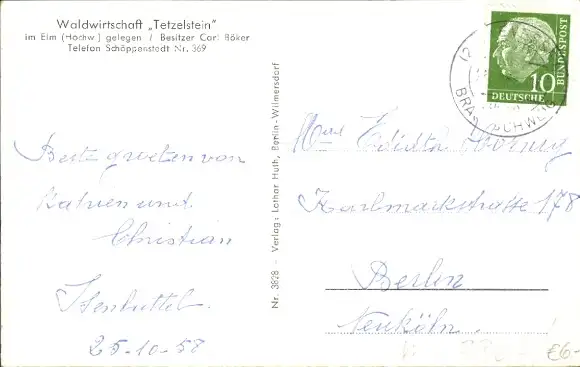 Waldwirtschaft „Tetzelstein"
im Elm (Hochw.) gelegen / Besitzer Carl Böker
Telefon Schöppenstedt Nr. 369
Beste groeten von
Katrien und
Christian
Isenbüttel.
25-10-58
Nr. 3828 - Verlag: Lothar Huth, Berlin-Wilmersdorf
10
DEUTSCHE
BUNDESPOST
Editha
Karlmarkstrasse 178
Berlin
Neuköln.
€6-